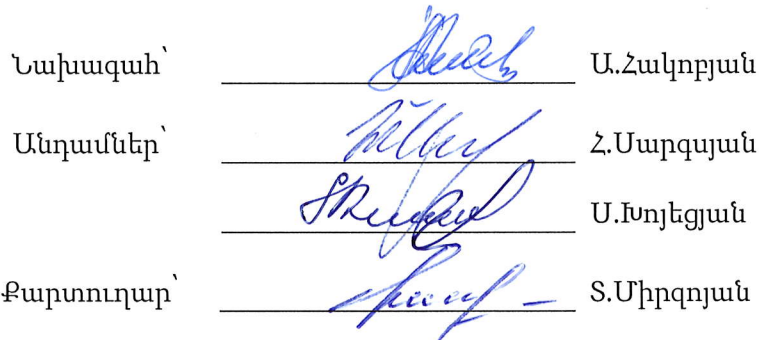 Նախագահ՝ Ա.Հակոբյան
Անդամներ՝ Հ.Սարգսյան
Ս.Խոյեցյան
Քարտուղար՝ Տ.Միրզոյան